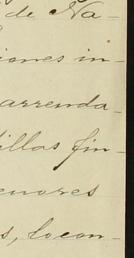 de Na-
iones in-
arrenda-
illas fin-
enores
s, locon-